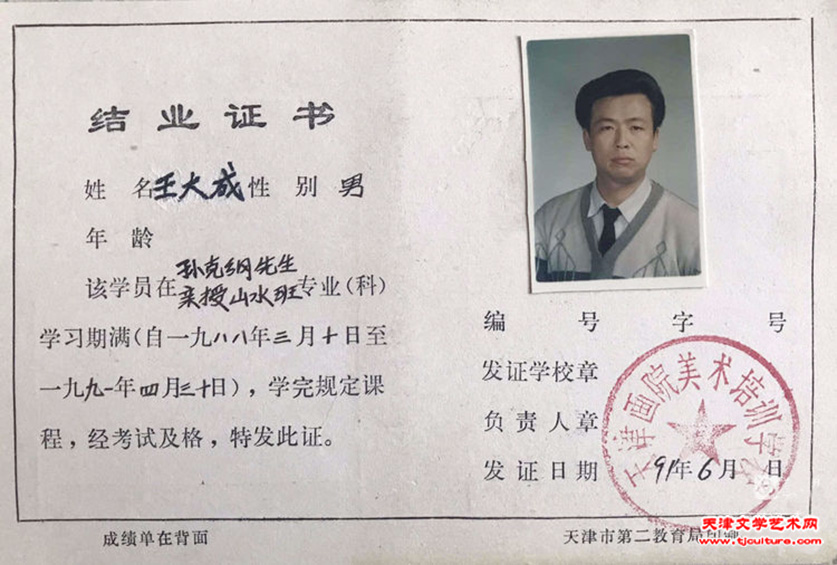 结业证书
姓 名王大成性 别 男
年 龄
该学员在孙克纲先生
亲授山水班专业(科)
学习期满(自一九八八年三月十日至
一九九一年四月三十日),学完规定课
程,经考试及格,特发此证。
成绩单在背面
编 号 字 号
发证学校章
负责人章
发证日期 91年6月 日
天津画院美术培训学校
天津市第二教育局印制
天津文学艺术网
www.tjculture.com